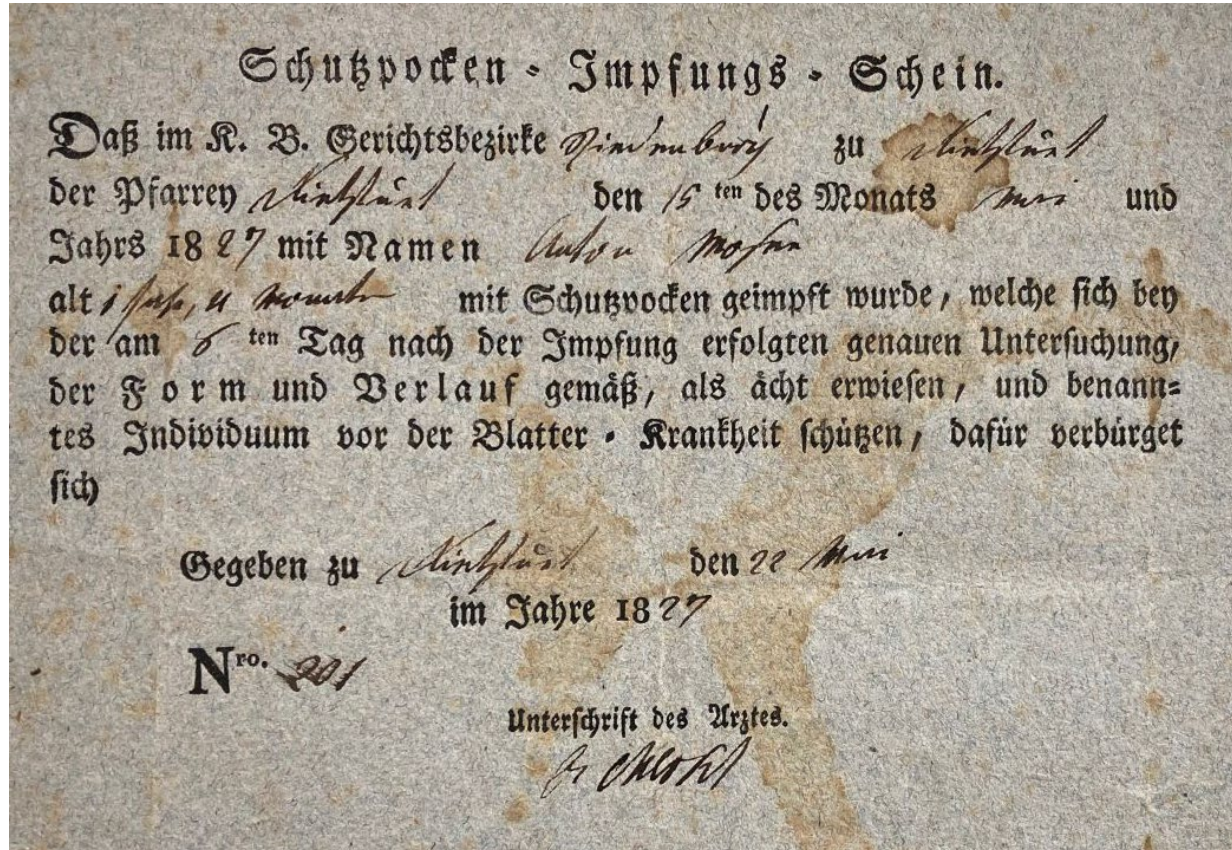 Schutzpocken - Impfungs - Schein.
Daß im K. B. Gerichtsbezirke Riedenburg zu
der Pfarrey den 15 ten des Monats Mai und
Jahrs 1827 mit Namen Anton Moser
alt 1 Jahr, 11 Monate mit Schutzpocken geimpft wurde, welche sich bey
der am 6 ten Tag nach der Impfung erfolgten genauen Untersuchung,
der Form und Verlauf gemäß, als ächt erwiesen, und benann=
tes Individuum vor der Blatter - Krankheit schützen, dafür verbürget
sich
Gegeben zu den 22 Mai
im Jahre 1827
Nro. 201
Unterschrift des Arztes.